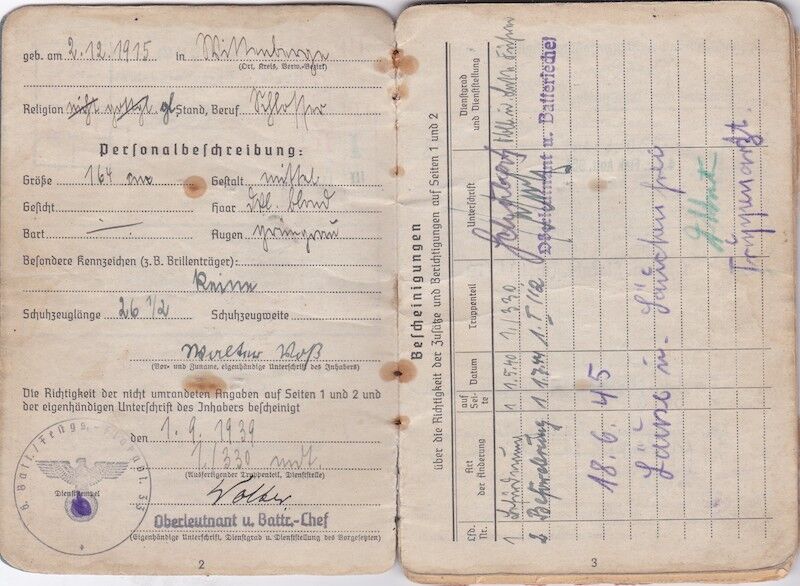 geb. am 2.12.1915 in Wittenberge
(Ort, Kreis, Verw.-Bezirk)
Religion nicht gottgl. gl Stand, Beruf Schlosser
Personalbeschreibung:
Größe 164 cm Gestalt mittel
Gesicht Haar dkl. blond
Bart — Augen graugrün
Besondere Kennzeichen (z. B. Brillenträger):
Keine
Schuhzeuglänge 26 1/2 Schuhzeugweite
Walter Voß
(Vor- und Zuname, eigenhändige Unterschrift des Inhabers)
Die Richtigkeit der nicht umrandeten Angaben auf Seiten 1 und 2 und
der eigenhändigen Unterschrift des Inhabers bescheinigt
den 1. 9. 1939
1./330
(Ausfertigender Truppenteil, Dienststelle)
Dienststempel
Oberleutnant u. Battr.-Chef
(Eigenhändige Unterschrift, Dienstgrad u. Dienststellung des Vorgesetzten)
2
Bescheinigungen
über die Richtigkeit der Zusätze und Berichtigungen auf Seiten 1 und 2
Lfd. Nr.
Art der Änderung
auf Seite
Datum
Truppenteil
Unterschrift
Dienstgrad und Dienststellung
1 1 1.5.40 1./330
2 Beförderung 1 1.7.41
u. Batteriechef
18. 6. 45
Läuse u. Seuchenfrei
Truppenarzt.
3